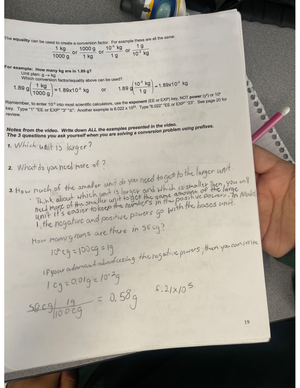 The equality can be used to create a conversion factor. For example these are all the same:
1 kg / 1000 g or 1000 g / 1 kg or 10⁻³ kg / 1 g or 1 g / 10⁻³ kg
For example: How many kg are in 1.89 g?
Unit plan: g → kg
Which conversion factor/equality above can be used?
1.89 g | 1 kg / 1000 g | = 1.89x10⁻³ kg or 1.89 g | 10⁻³ kg / 1 g | = 1.89x10⁻³ kg
Remember, to enter 10ˣ into most scientific calculators, use the exponent (EE or EXP) key, NOT power (yˣ) or 10ˣ
review.
Notes from the video. Write down ALL the examples presented in the video.
The 3 questions you ask yourself when you are solving a conversion problem using prefixes.
1. Which unit is larger?
2. What do you need more of?
3. How much of the smaller unit do you need to get to the larger unit
· Think about which unit is larger and which is smaller then you will
need more of the smaller unit to get the same amount of the large
unit it's easier to keep the numbers in the positive powers. In Mode
1, the negative and positive powers go with the bases unit.
How many grams are there in 58 cg?
10² cg = 100 cg = 1g
1 cg = 0.01g = 10⁻²g
58 cg | 1g / 100 cg = 0.58g
6.21x10⁵
19